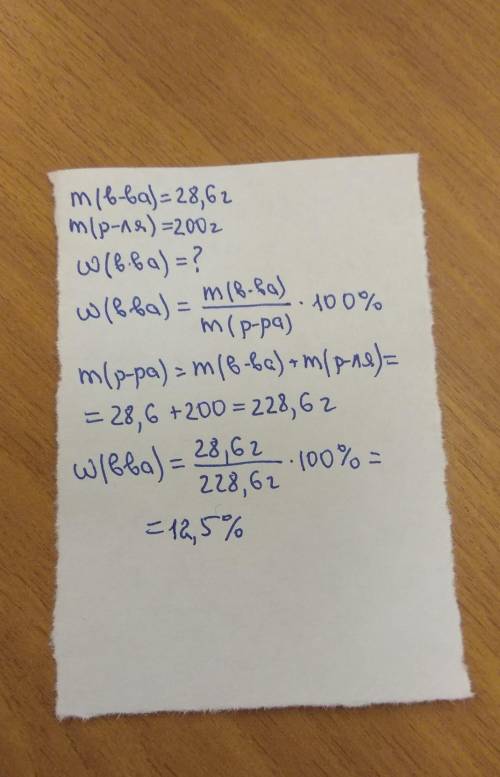 m(в-ва)=28,6г
m(р-ля)=200г
ω(в-ва)=?
ω(в-ва) = m(в-ва) / m(р-ра) · 100%
m(р-ра) = m(в-ва) + m(р-ля) =
= 28,6 + 200 = 228,6г
ω(вва) = 28,6г / 228,6г · 100% =
= 12,5%